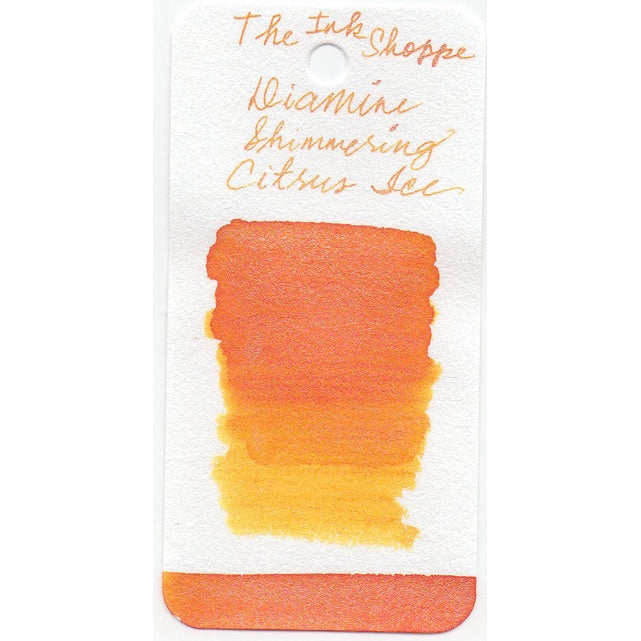 The Ink Shoppe
Diamine
Shimmering
Citrus Ice